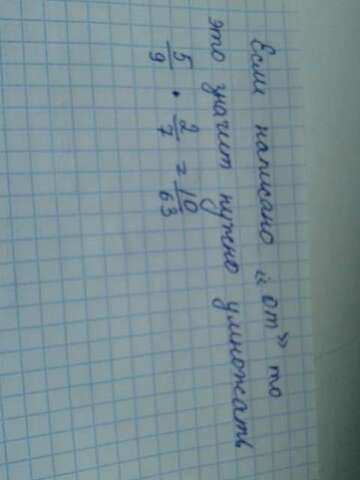 Если написано „от" то
это значит нужно умножать
5/9 · 2/7 = 10/63